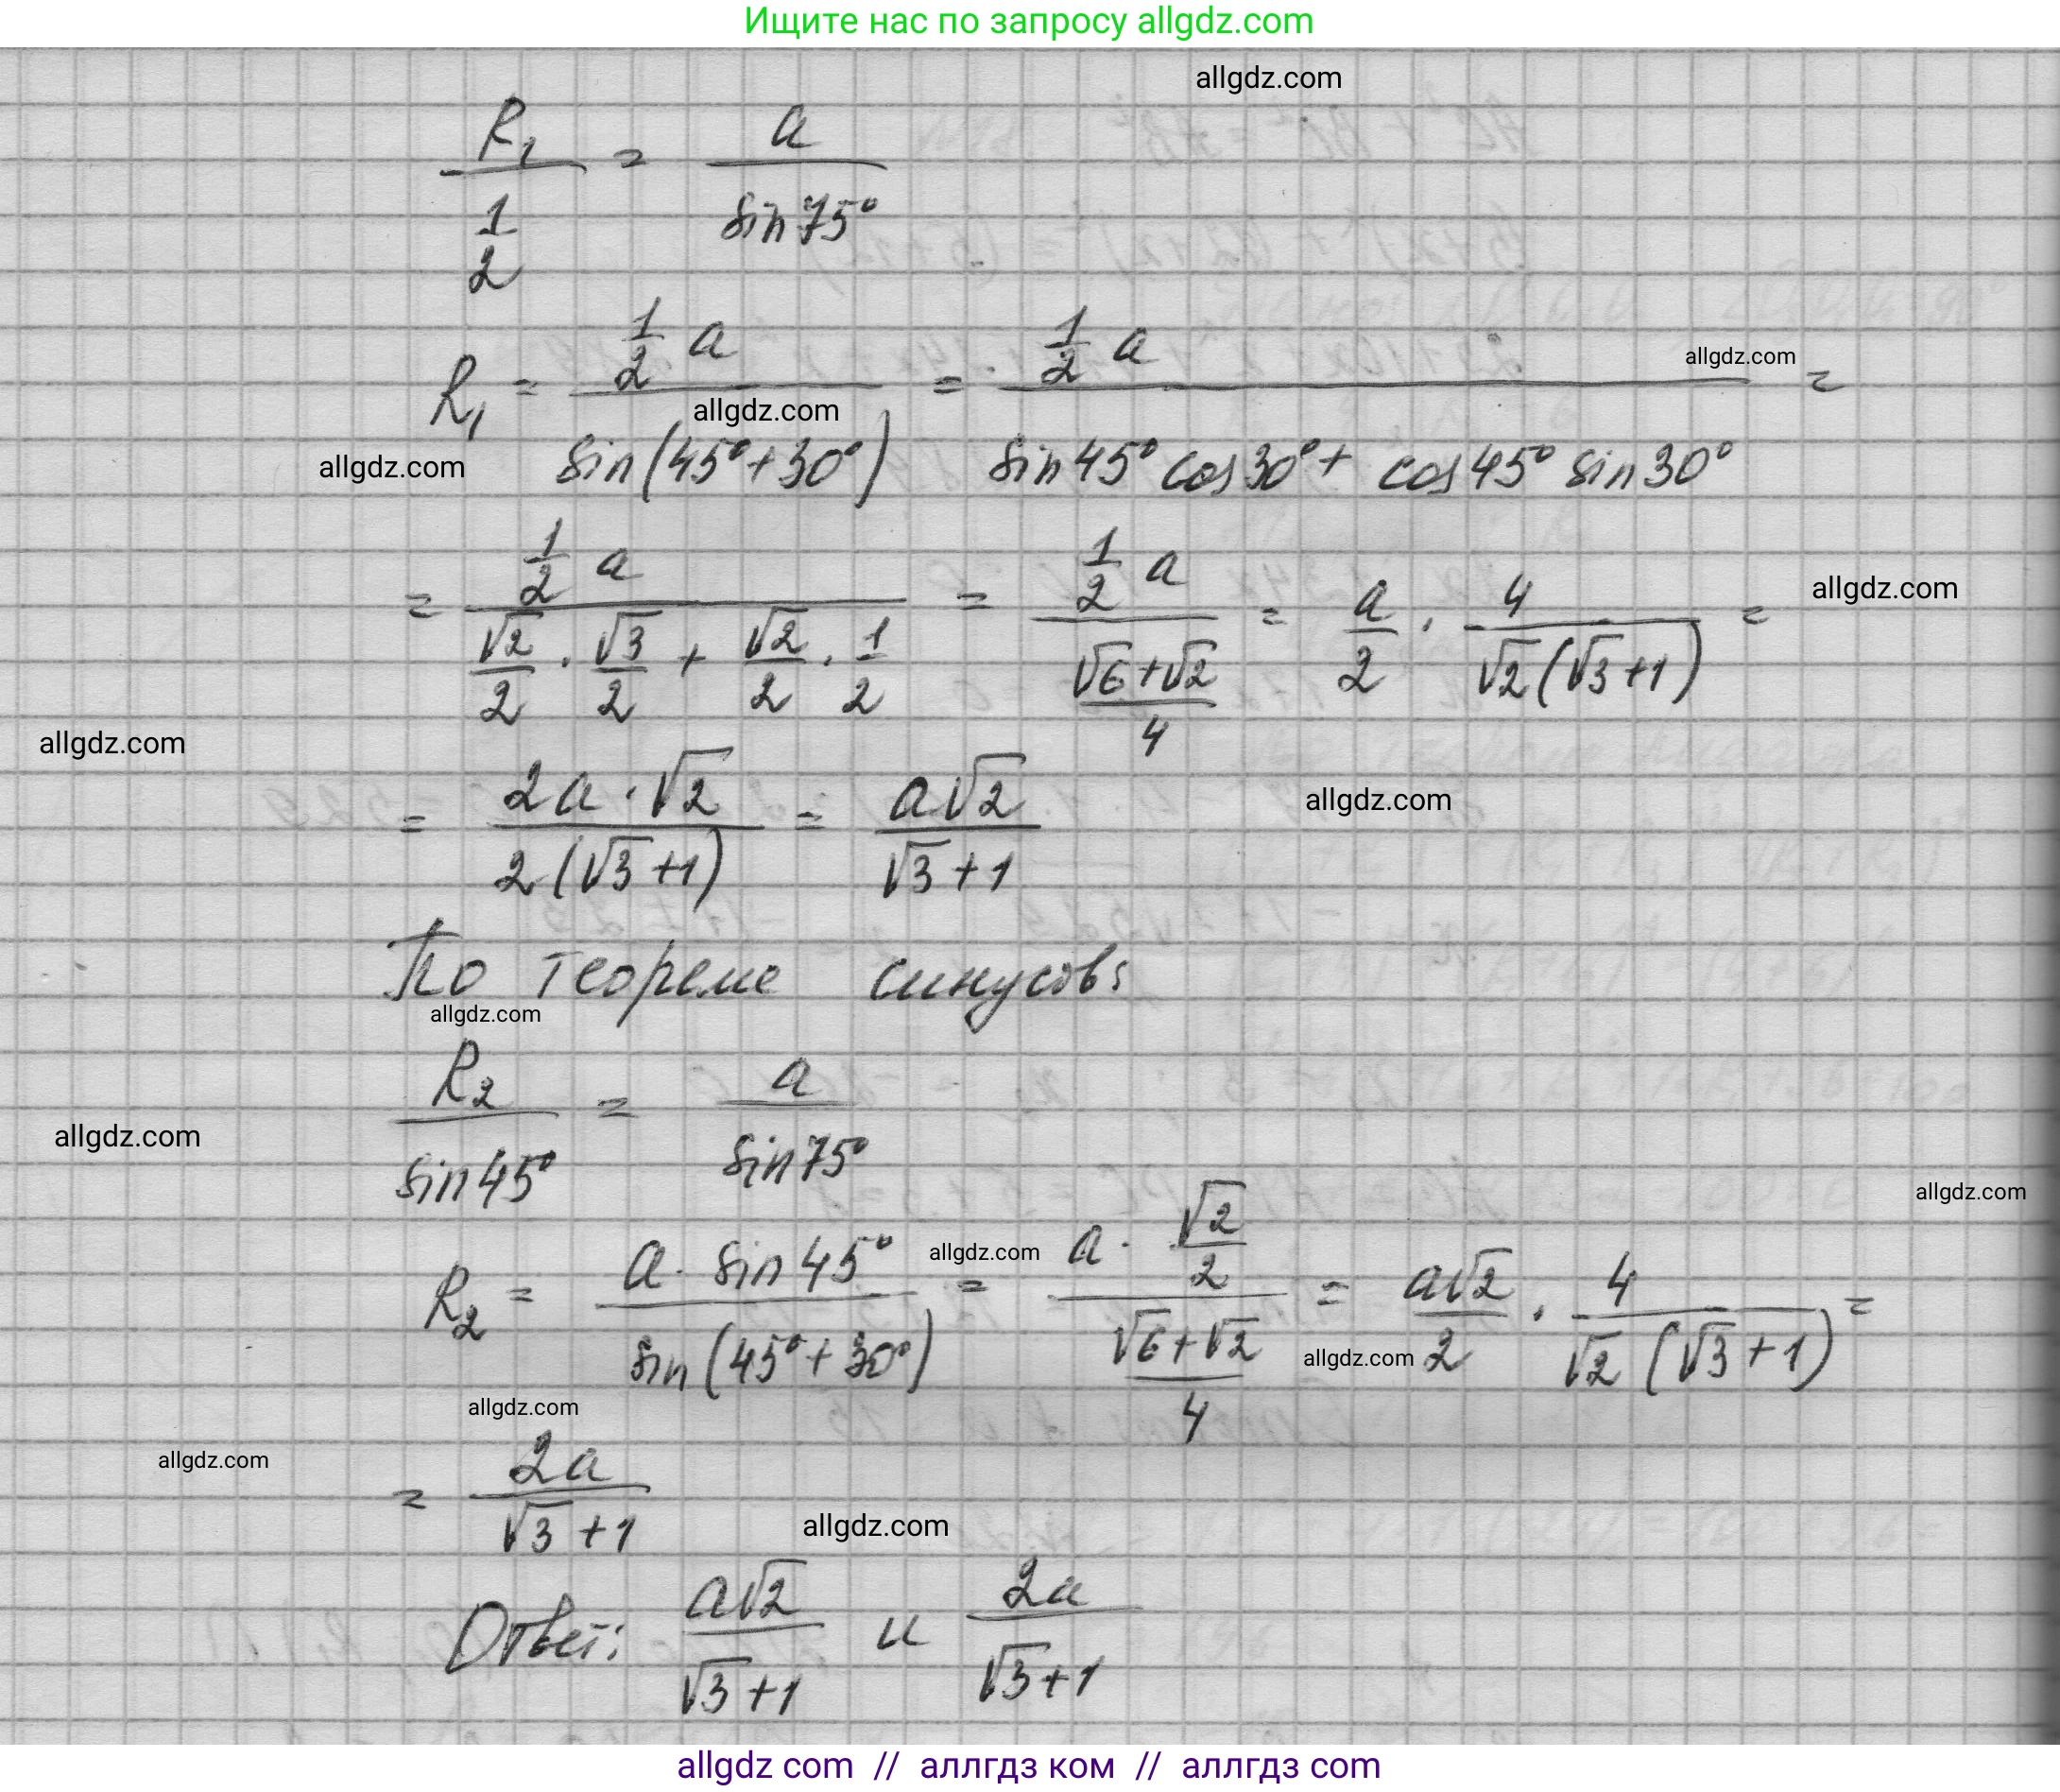 Ищите нас по запросу allgdz.com
allgdz.com
R₁/(1/2) = a/sin75°
R₁ = (1/2 a)/sin(45°+30°) = (1/2 a)/(sin45° cos30° + cos45° sin30°) =
allgdz.com
allgdz.com
allgdz.com
= (1/2 a)/(√2/2 · √3/2 + √2/2 · 1/2) = (1/2 a)/((√6+√2)/4) = a/2 · 4/(√2(√3+1)) =
allgdz.com
allgdz.com
= (2a·√2)/(2(√3+1)) = a√2/(√3+1)
allgdz.com
По теореме синусов:
allgdz.com
R₂/sin45° = a/sin75°
allgdz.com
allgdz.com
R₂ = (a·sin45°)/sin(45°+30°) = (a·√2/2)/((√6+√2)/4) = a√2/2 · 4/(√2(√3+1)) =
allgdz.com
allgdz.com
allgdz.com
allgdz.com
= 2a/(√3+1)
allgdz.com
Ответ: a√2/(√3+1) и 2a/(√3+1)
allgdz com // аллгдз ком // аллгдз com